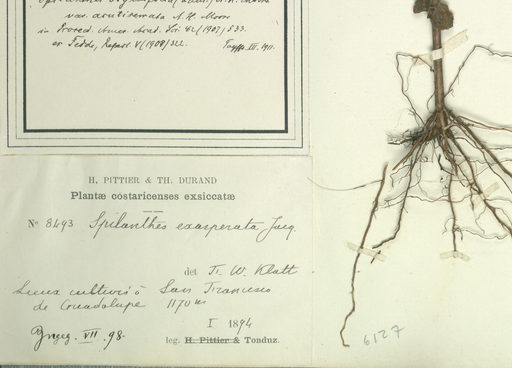 var. acutiserrata A. H. Moore
in Proceed. Amer. Acad. Sci. 42 (1907) 533.
ex Fedde, Repert. V (1908) 322.
III. 1911.
H. PITTIER & TH. DURAND
Plantæ costaricenses exsiccatæ
No 8493 Spilanthes exasperata Jacq.
det Fr. W. Klatt
Lieux cultivés à San Francisco
de Guadalupe 1170 m
I 1894
VII. 98.
leg. H. Pittier & Tonduz.
6127